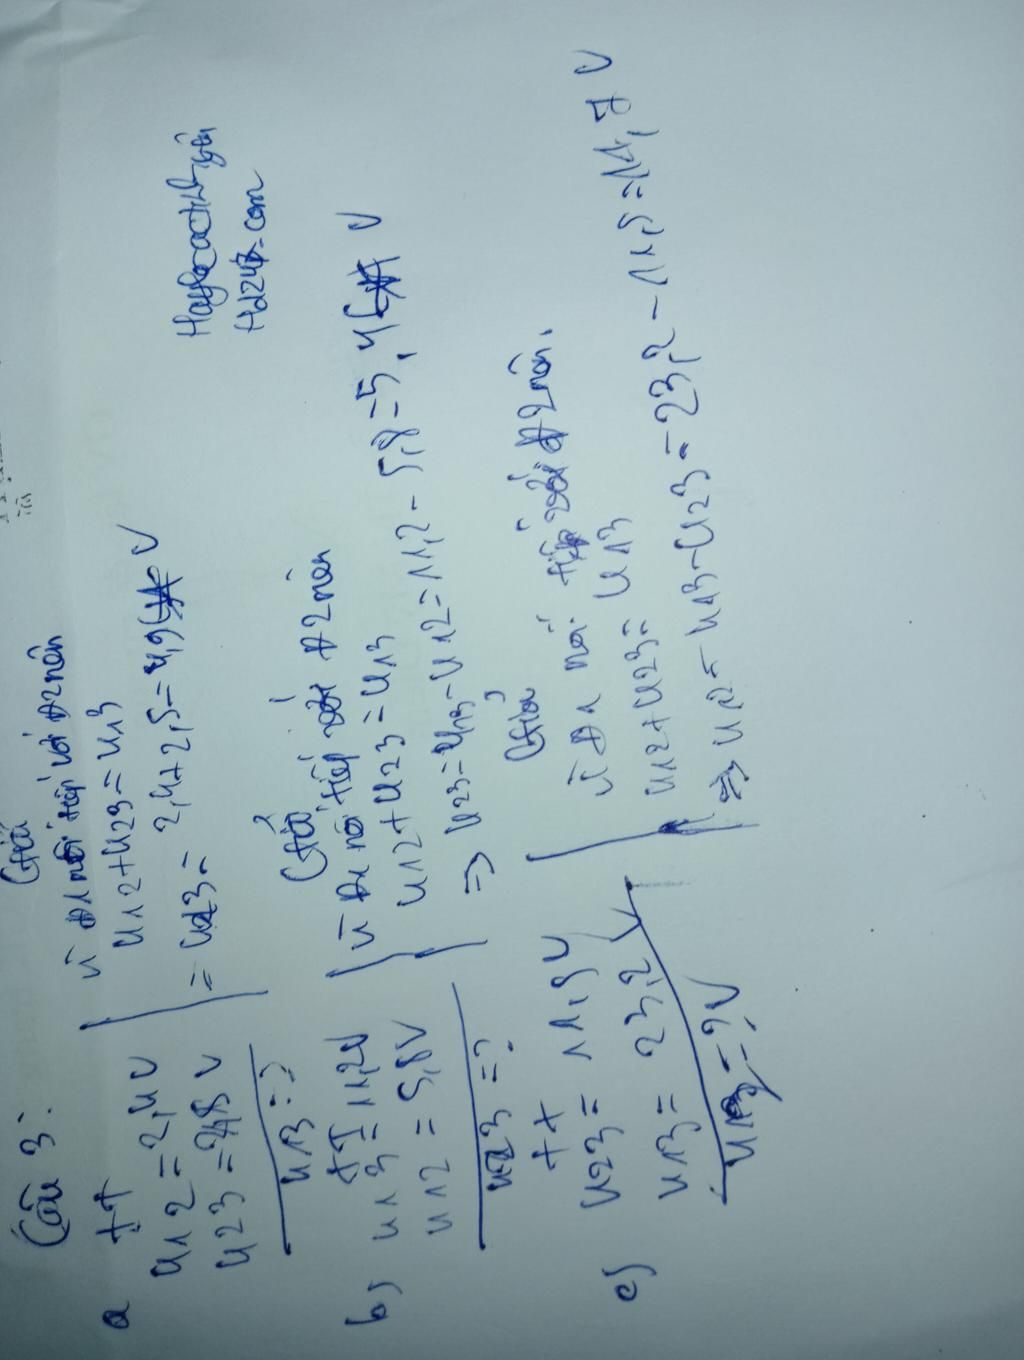 Câu 3:
a
tt
U12 = 2,4V
U23 = 2,5 V
U13 = ?
Giải
Vì Đ1 nối tiếp với Đ2 nên
U12 + U23 = U13
= U13 = 2,4 + 2,5 = 4,9 V
b)
tt
U13 = 11,2V
U12 = 5,8V
U23 = ?
Giải
Vì Đ1 nối tiếp với Đ2 nên
U12 + U23 = U13
=> U23 = U13 - U12 = 11,2 - 5,8 = 5,4 V
c)
tt
U23 = 11,5V
U13 = 23,2 V
U12 = ? V
Giải
Vì Đ1 nối tiếp với Đ2 nên.
U12 + U23 = U13
=> U12 = U13 - U23 = 23,2 - 11,5 = 11,7 V
Hd247.com